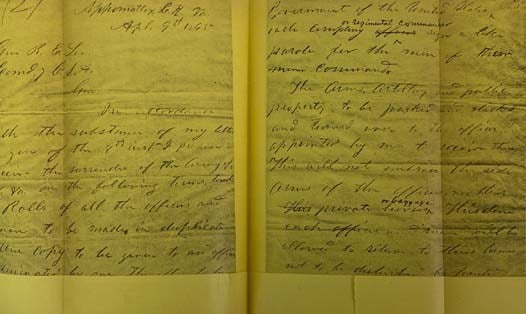 Appomattox C.H. Va.
Apl. 9th 1865
Gen R. E. Lee
Comd'g C.S.A.
Gen.
In accordance
th the substance of my letter
you of the 8th inst. I propose
ceive the surrender of the Army of
Va. on the following terms, to wit
Rolls of all the officers and
en to be made in duplicate
One copy to be given to an officer
designated by me
Government of the United States
each company or regimental commander sign a like
parole for the men of their
commands
The Arms, Artillery and public
property to be parked and stacked
and turned over to the officer
appointed by me to receive them
This will not embrace the side
arms of the officers, nor their
private horses or baggage. This done
each officer and man will be
allowed to return to their homes
not to be disturbed by United